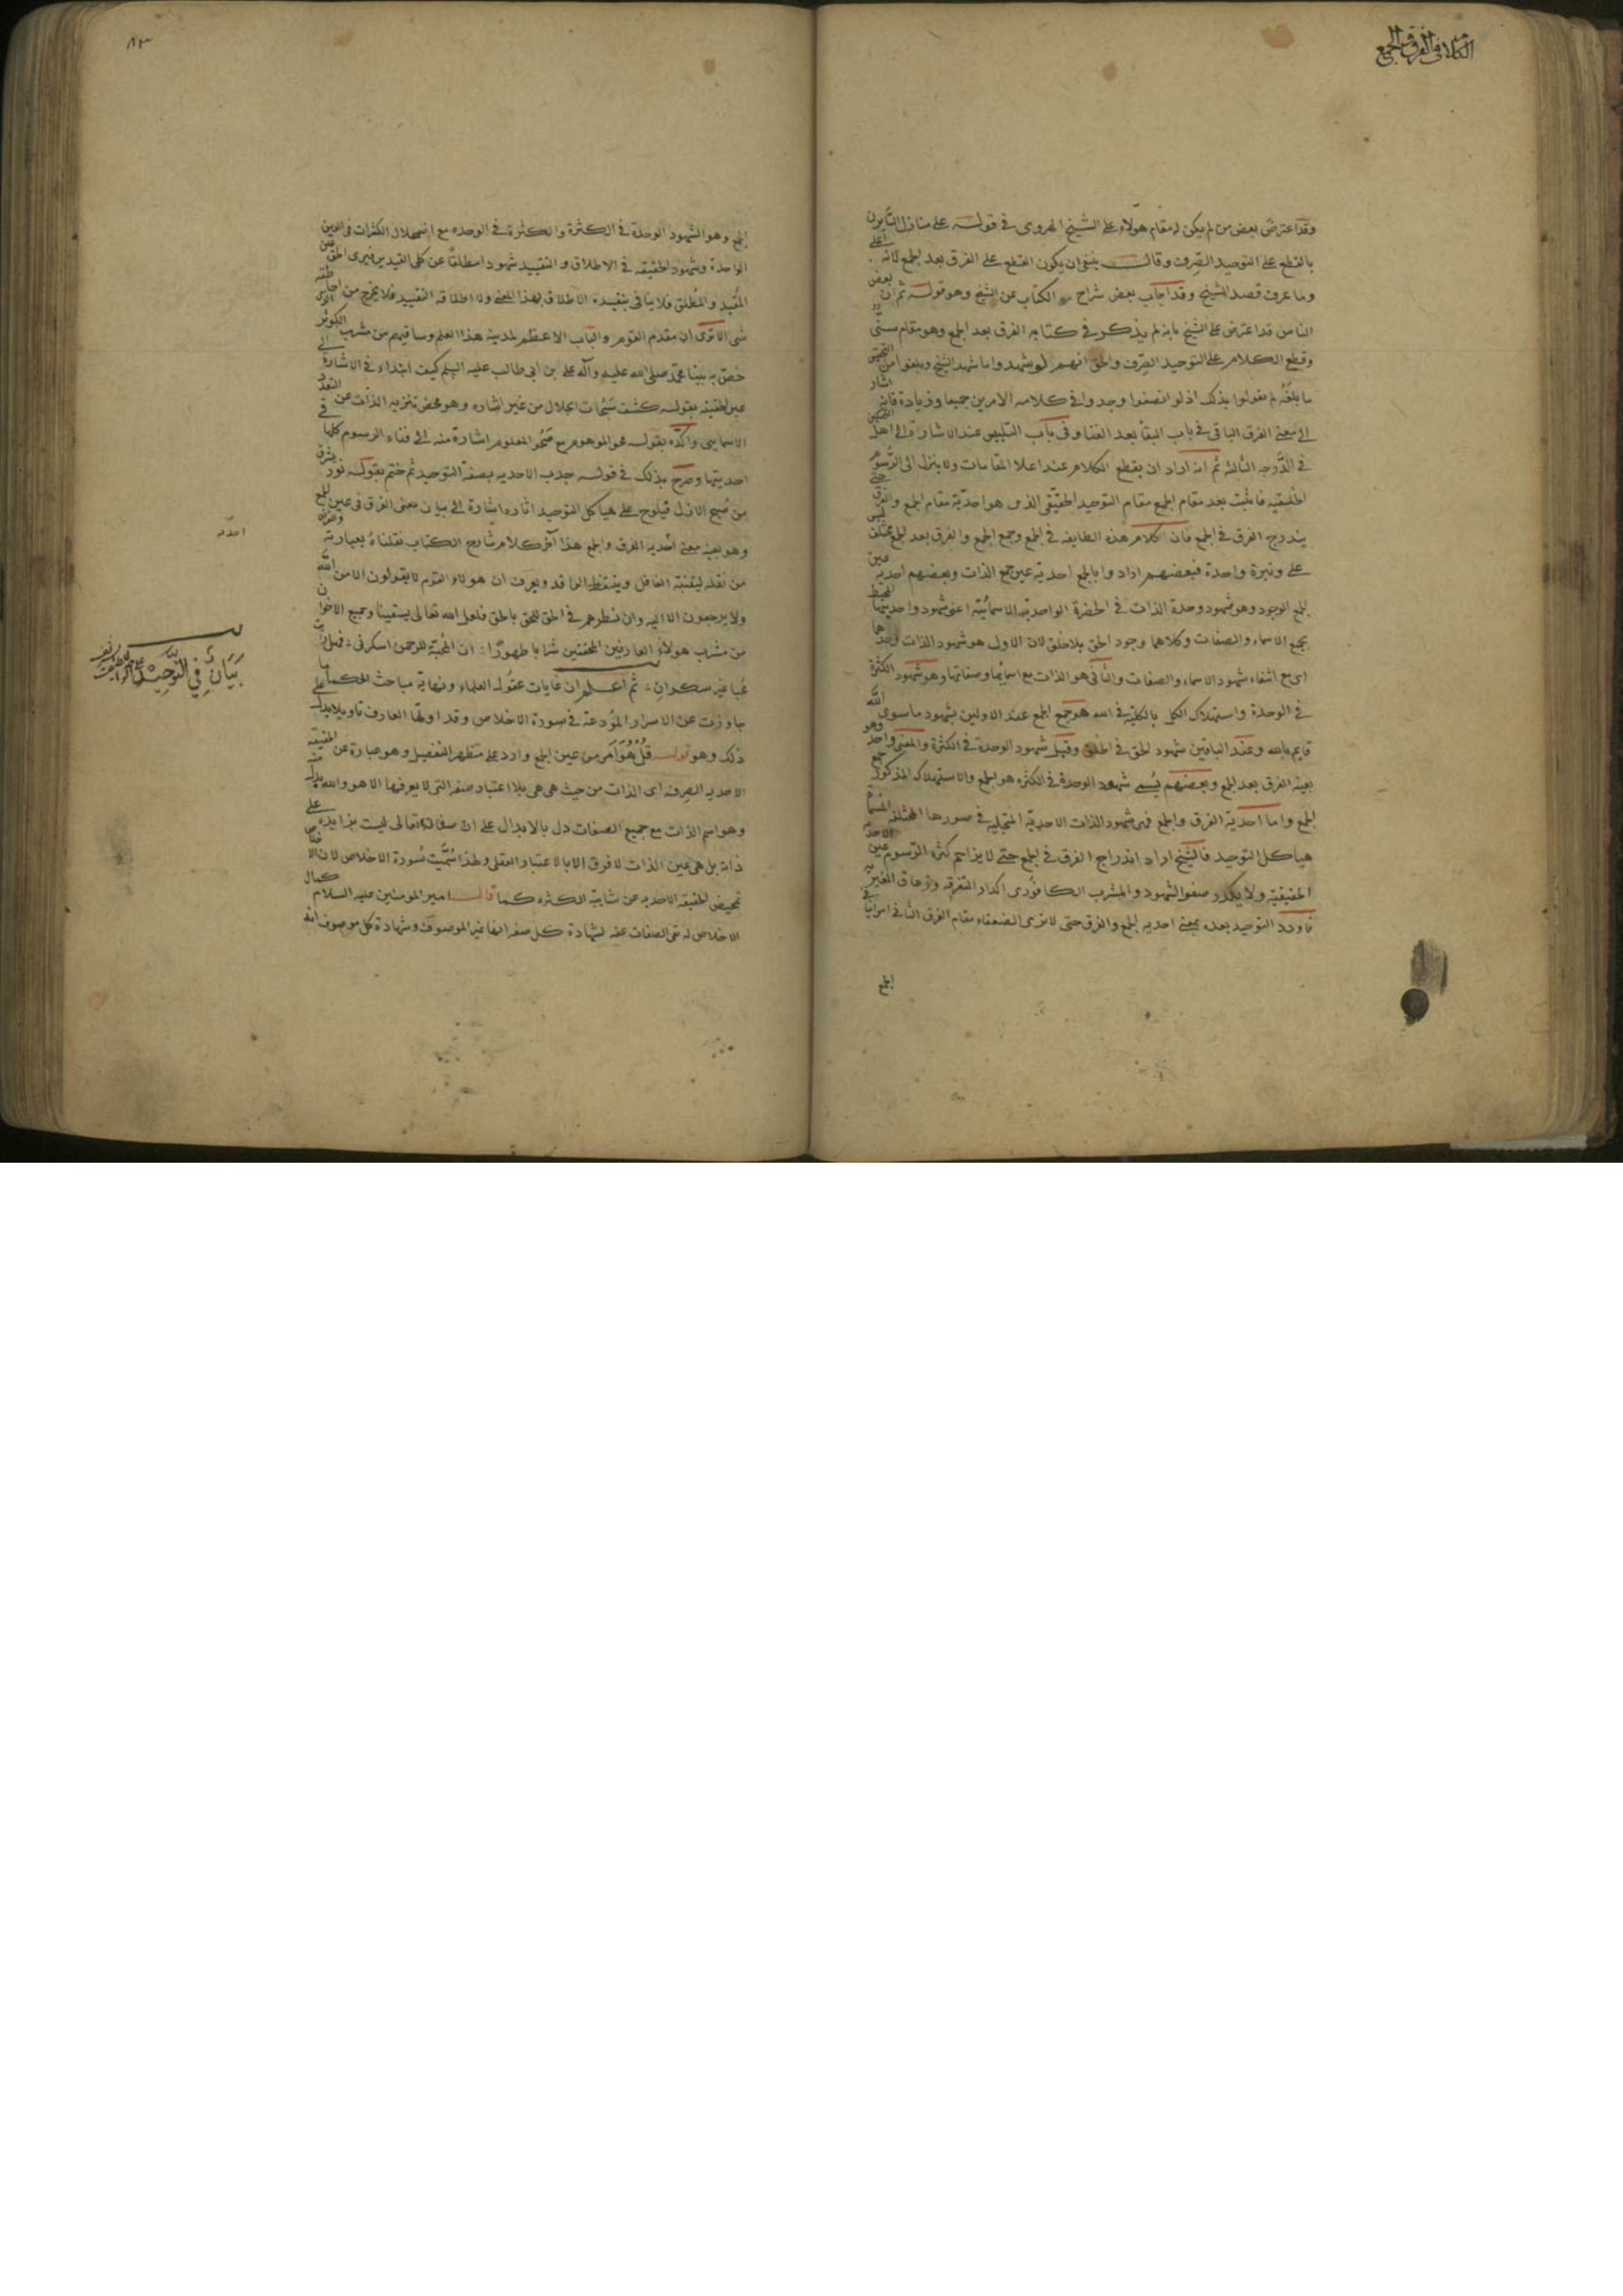 الكلام في الفرق والجمع
وقد اعترض بعض من لم يكن له مقام هؤلاء على الشيخ الهروى فى قوله على منازل السايرين
بالقطع على التوحيد الصرف وقال ينبغى ان يكون القطع على الفرق بعد الجمع لانه اعلى
وما عرف قصد الشيخ وقد اجاب بعض شراح الكتاب عن الشيخ وهو قوله ثم ان بعض
الناس قد اعترض على الشيخ بانه لم يذكر فى كتابه الفرق بعد الجمع وهو مقام سنى
وقطع الكلام على التوحيد الصرف والحق انهم لو شهدوا ما شهد الشيخ وبلغوا من التحقيق
ما بلغه لم يقولوا بذلك اذ لو انصفوا وجدوا فى كلامه الامرين جميعا وزيادة فانه اشار
الى معنى الفرق الباقى فى باب البقا بعد الفنا وفى باب التلبيس عند الاشارة الى اهل التمكين
فى الدرجه الثالثه ثم انه اراد ان يقطع الكلام عند اعلا المقامات ولا ينزل الى الرسوم
الخلقيه فاثبت بعد مقام الجمع مقام التوحيد الحقيقى الذى هو احدية مقام الجمع والفرق حتى
يندرج الفرق فى الجمع فان كلام هذه الطايفه فى الجمع وجمع الجمع والفرق بعد الجمع مختلف ليس
على وتيرة واحدة فبعضهم ارادوا بالجمع احدية عين جمع الذات وبعضهم احديه عين
الجمع الوجود وهو شهود وحدة الذات فى الحضرة الواحديه الاسمائية اعنى شهود واحديتها المحيط
بجميع الاسماء والصفات وكلاهما وجود الحق بلا خلق لان الاول هو شهود الذات وحدها
اى مع انتفاء شهود الاسماء والصفات والثانى هو الذات مع اسمائها وصفاتها وهو شهود الكثرة
فى الوحدة واستهلاك الكل بالكلية فى الله هو جمع الجمع عند الاولين بشهود ما سوى الله
قايم بالله وعند الباقين شهود الحق فى الخلق وقيل شهود الوحدة فى الكثرة والمعنى واحد وهو
بعينه الفرق بعد الجمع وبعضهم يسمى شهود الوحدة فى الكثره هو الجمع والاستهلاك المذكور جمع
الجمع واما احدية الفرق والجمع فهى شهود الذات الاحدية المتجليه فى صورها المختلفه المسماة
هياكل التوحيد فالشيخ اراد اندراج الفرق فى الجمع حتى لا يزاحم كثرة الرسوم عين الاحديه
الحقيقية ولا يكدر صفو الشهود والمشرب الكافورى اكدار التفرقه وزعاق الغيريه
فاورد التوحيد بعده بمعنى احديه الجمع والفرق حتى لا ترى الضعفاء مقام الفرق الثانى فى
الجمع
٨٣
الجمع وهو الشهود الوحدة فى الكثرة والكثرة فى الوحده مع اضمحلال الكثرات فى العين
الواحدة وشهود الحقيقه فى الاطلاق والتقييد شهودا مطلقا عن كلى القيدين فيرى الحق عين
المقيد والمطلق فلا ينافى بتقييده الاطلاق بهذا المعنى ولا اطلاقه التقييد فلا يخرج من احاطته
شى الا ترى ان مقدم القوم والباب الاعظم لمدينة هذا العلم وساقيهم من مشرب الكوثر الذى
خص به نبينا محمد صلى الله عليه وآله على بن ابى طالب عليه السلم كيف ابتداء فى الاشارة الى
عين الحقيقه بقوله كشف سبحات الجلال من غير اشاره وهو محض تنزيه الذات عن التعدد
الاسمايى واكده بقوله محو الموهوم مع صحو المعلوم اشارة منه الى فناء الرسوم كلها فى
احديتها وصرح بذلك فى قوله جذب الاحديه بصفة التوحيد ثم ختم بقوله نور يشرق
من صبح الازل فيلوح على هياكل التوحيد اثاره اشارة الى بيان معنى الفرق فى عين الجمع
وهو بعينه معنى احديه الفرق والجمع هذا آخر كلام شارح الكتاب نقلناه بعبارته والغرض
من نقله ليتنبه الغافل ويتيقظ الراقد ويعرف ان هولاء القوم لا يقولون الا من الله
ولا يرجعون الا اليه وان نظرهم فى الحق للحق بالحق فلعل الله تعالى يسقينا وجميع الاخوان
من مشرب هولاء العارفين المحققين شرابا طهورا ان المحبة للرحمن اسكرنى فهل رايت
محبا غير سكران ثم اعلم ان غايات عقول العلماء ونهاية مباحث الحكما ما
جاوزت عن الاسرار المودعة فى صورة الاخلاص وقد اولها العارف تاويلا يدل على
ذلك وهو قوله قل هو امر من عين الجمع وارد على مظهر التفصيل وهو عبارة عن الحقيقه
الاحديه الصرفه اى الذات من حيث هى هى بلا اعتبار صفه التى لا يعرفها الا هو والله بدل منه
وهو اسم الذات مع جميع الصفات دل بالابدال على ان صفاته تعالى ليست بزايده على
ذاته بل هى عين الذات لا فرق الا بالاعتبار العقلى ولهذا سميت سورة الاخلاص لان الاخلاص
تمحيض الحقيقه الاحديه عن شايبة الكثره كما قال امير المومنين عليه السلام كمال
الاخلاص له نفى الصفات عنه لشهادة كل صفه انها غير الموصوف وشهادة كل موصوف انه
احدية
بيان في التوحيد